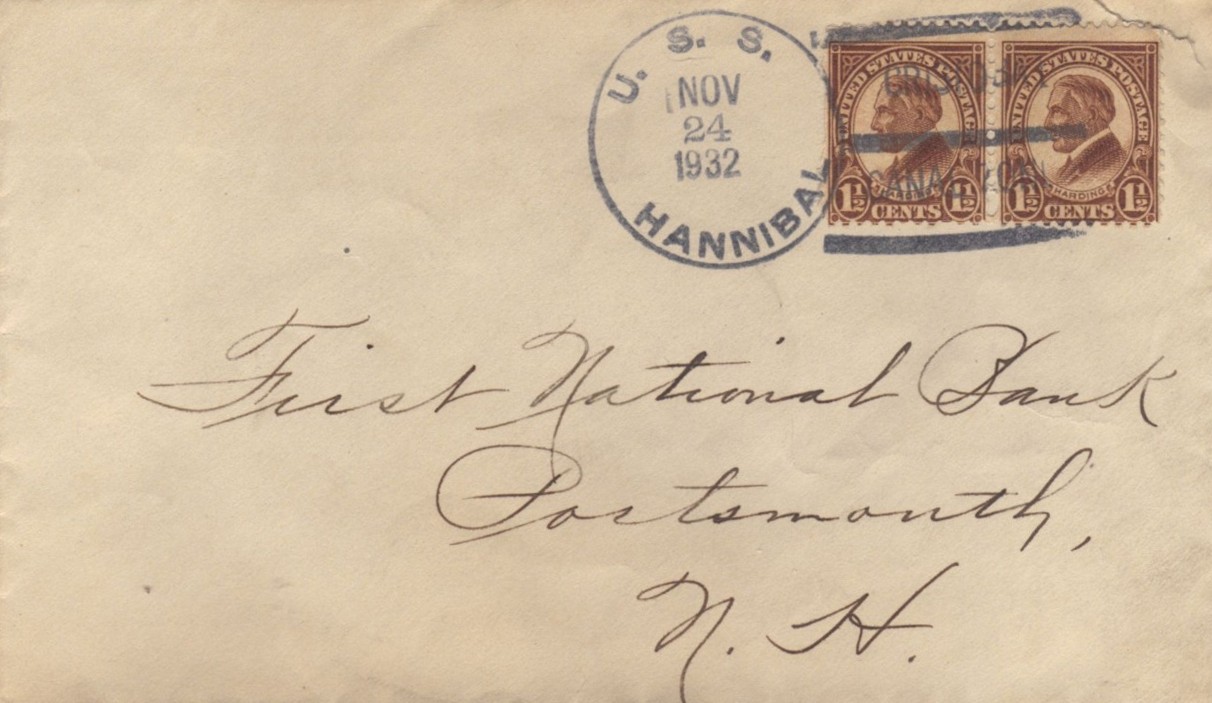 U. S. S.
NOV
24
1932
HANNIBAL
CANAL ZONE
UNITED STATES POSTAGE
HARDING
1½ CENTS 1½
UNITED STATES POSTAGE
HARDING
1½ CENTS 1½
First National Bank
Portsmouth,
N. H.